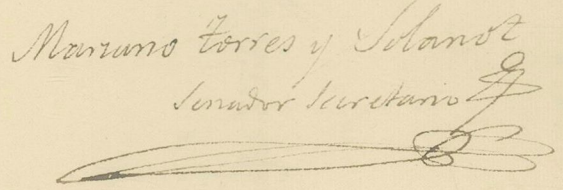 Mariano Torres y Solanot
Senador Secretario